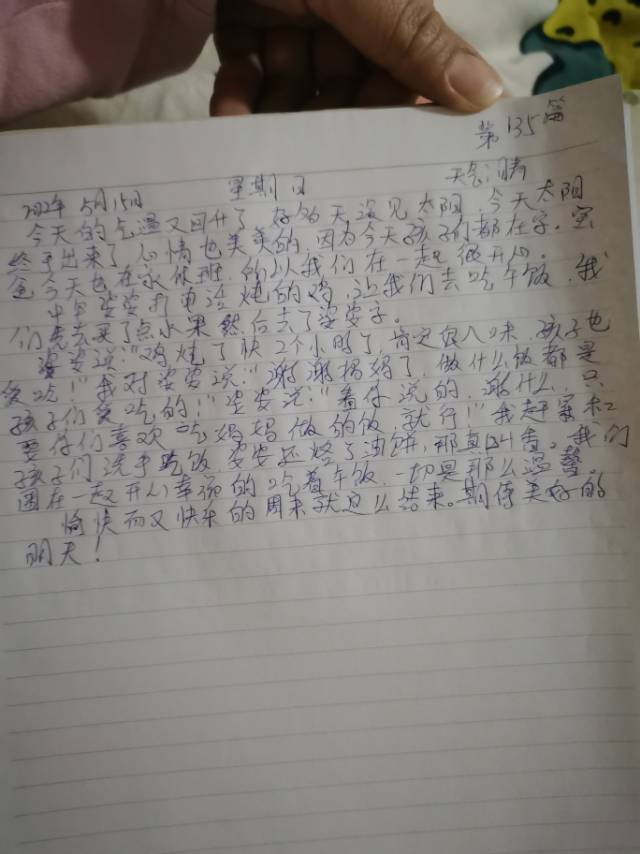 第135篇
2022年5月15日 星期日 天气:晴
今天的气温又回升了,好多天没见太阳,今天太阳
终于出来了,心情也美美的,因为今天孩子们都在家。宝
爸今天也在家休班,所以我们在一起很开心。
中午婆婆打电话炖的鸡,让我们去吃午饭,我
们先去买了点水果然后去了婆婆子。
婆婆说:"鸡炖了快2个小时了,肯定很入味,孩子也
爱吃!"我对婆婆说:"谢谢妈妈了,做什么饭都是
孩子们爱吃的!"婆婆说:"看你说的,谢什么,只
要你们喜欢吃妈妈做的饭,就行!"我赶紧和
孩子们洗手吃饭,婆婆还烙了油饼,那真叫香。我们
围在一起开心幸福的吃着午饭,一切是那么温馨。
愉快而又快乐的周末就这么结束。期待美好的
明天!